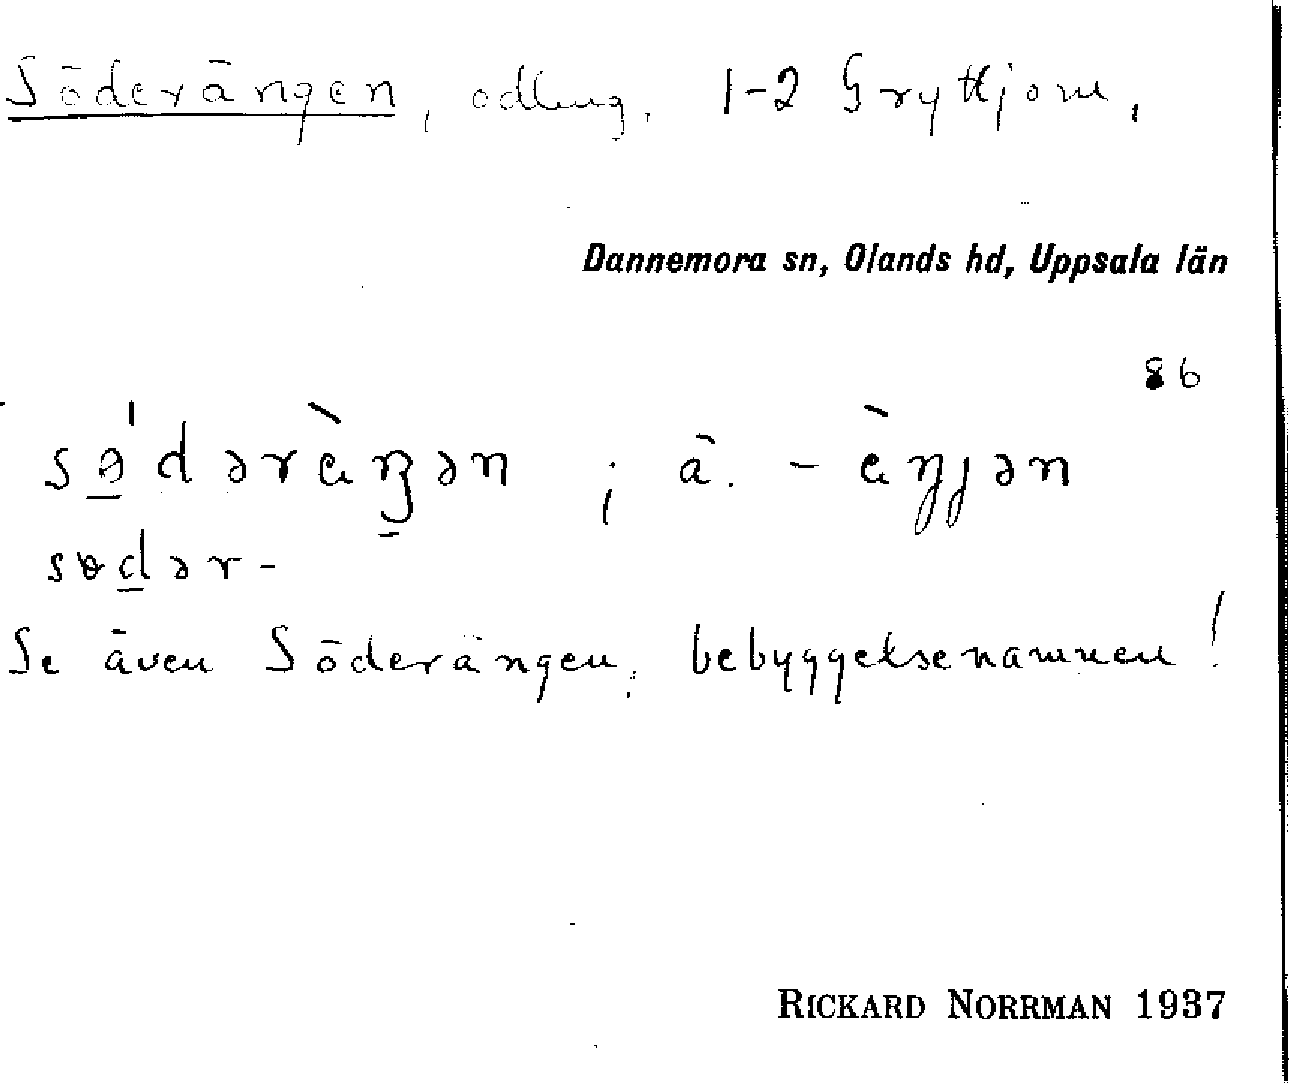 Söderängen, odling. 1-2 Gryttjom,
Dannemora sn, Olands hd, Uppsala län
86
sɵ̲́dəràŋən ; ä. - àŋjən
sɵd̲ər-
Se även Söderängen, bebyggelsenamnen!
RICKARD NORRMAN 1937